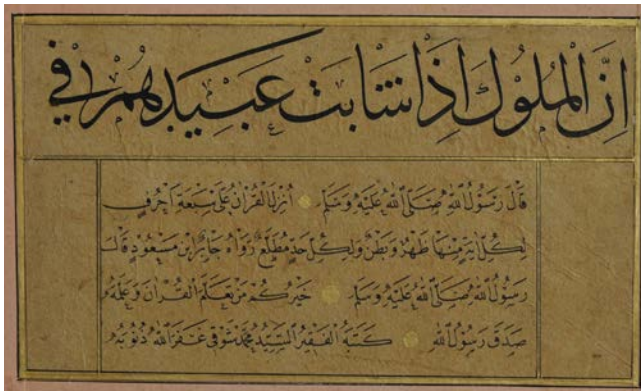 اِنَّ الْمُلُوكَ اِذَا شَابَتْ عَبِيدُهُمْ فِي
قَالَ رَسُولُ اللهِ صَلَّى اللهُ عَلَيْهِ وَسَلَّمَ اُنْزِلَ الْقُرْاٰنُ عَلٰى سَبْعَةِ اَحْرُفٍ
لِكُلِّ اٰيَةٍ مِنْهَا ظَهْرٌ وَبَطْنٌ وَلِكُلِّ حَدٍّ مُطَّلَعٌ رَوَاهُ ابْنُ مَسْعُودٍ قَالَ
رَسُولُ اللهِ صَلَّى اللهُ عَلَيْهِ وَسَلَّمَ خَيْرُكُمْ مَنْ تَعَلَّمَ الْقُرْاٰنَ وَعَلَّمَهُ
صَدَقَ رَسُولُ اللهِ كَتَبَهُ الْفَقِيرُ السَّيِّدُ مُحَمَّد شَوْقِي غَفَرَ اللهُ ذُنُوبَهُ